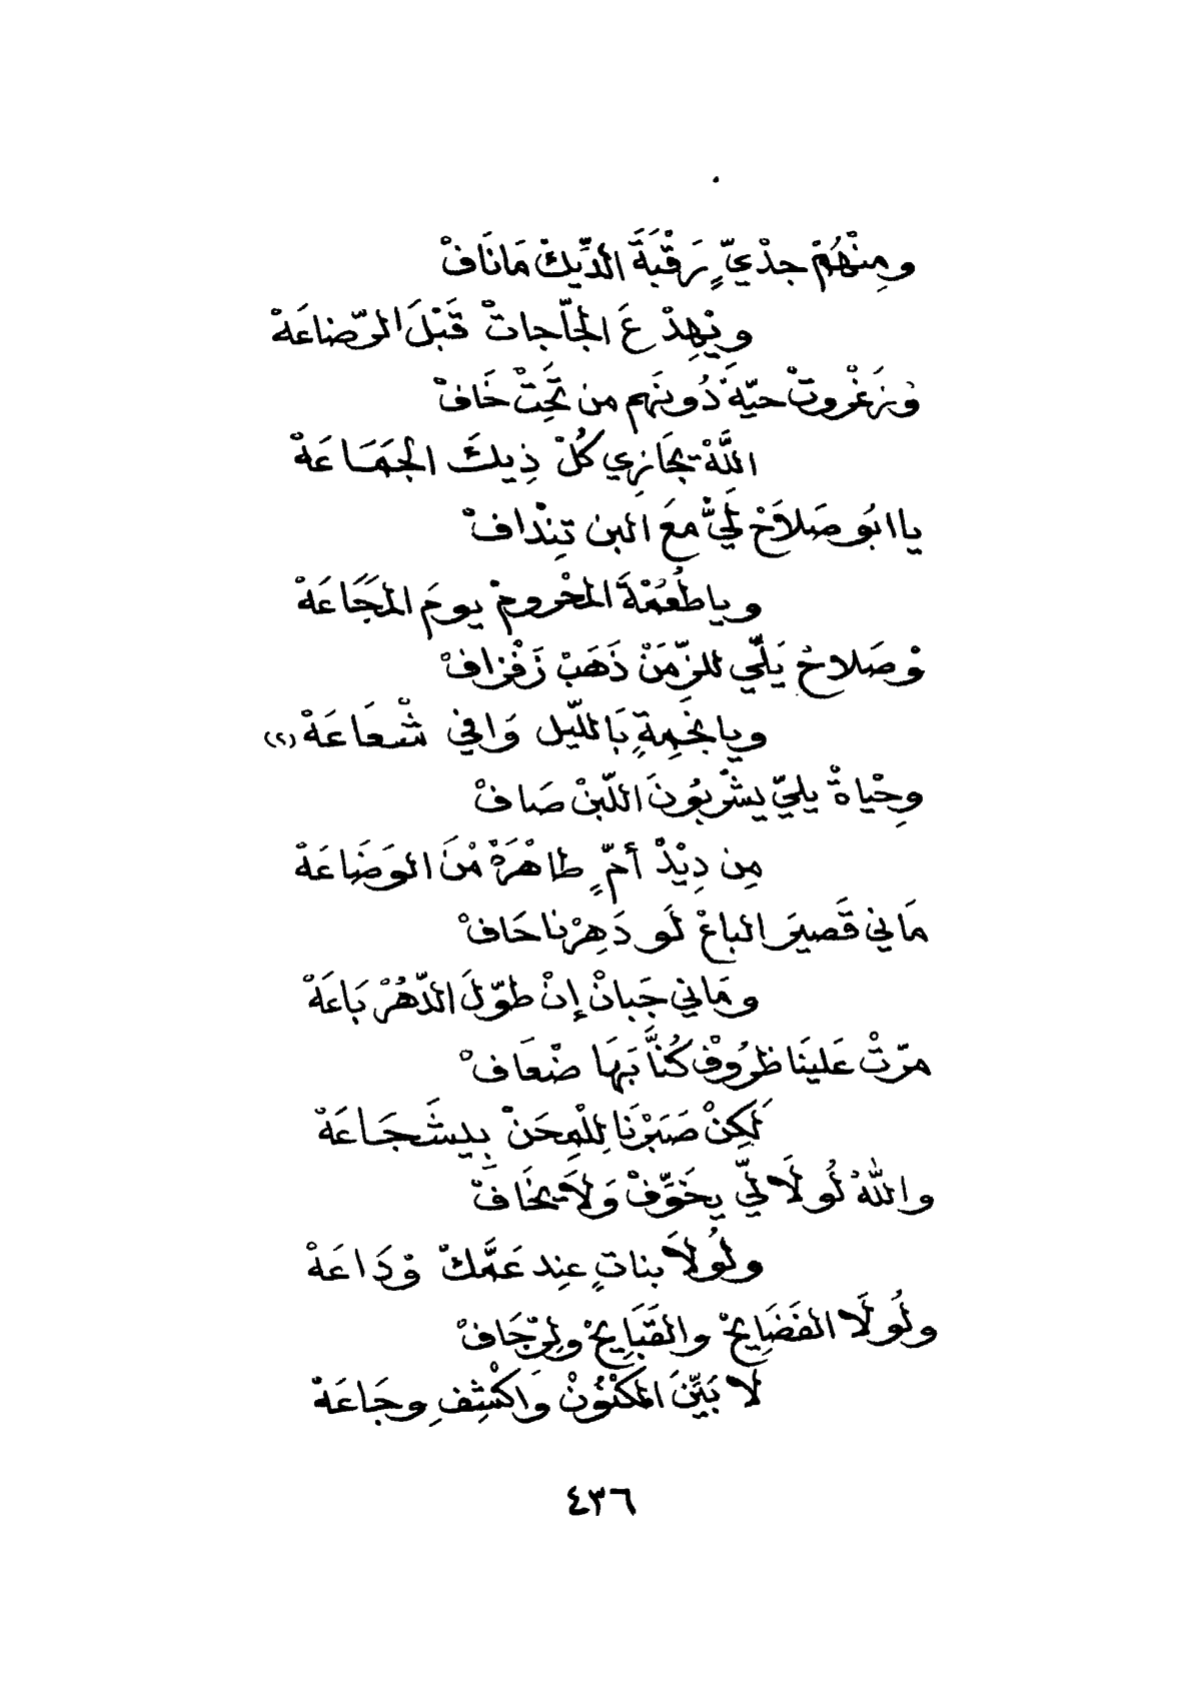 ومِنْهُمْ جدْيٍّ رَقْبَةَ الدِّيكْ مَانَافْ
ويْهِدْ عَ الجَلّاجاتْ قَبْلَ الرّضاعَةْ
وْزَغْروتْ حيّهْ دُونَهم من تَحِتْ خَافْ
اللَّهْ يجَازِي كُلْ ذِيكَ الجَمَاعَةْ
يا ابُو صَلاَحْ لَيُّ مَعَ البن تِنْدافْ
ويا طُعُمْةَ المحْرومْ يومَ المَجَاعَةْ
وْصَلاحُ يَلّي للزّمَنْ ذَهَبْ زَفْزافْ
ويا نجَمِةٍ بَالليّل وَافي شْعَاعَةْ (٢)
وِحْياةْ يليّ يشْرَبُونَ اللّبنْ صَافْ
مِن دِيْدْ أمٍّ طاهْرَةْ مْنَ الوَضَاعَةْ
مَاني قَصيرَ الباعْ لَو دَهِرْنا حَافْ
ومَاني جَبانْ إنْ طوّلَ الدّهُرْ بَاعَةْ
مرّتْ عَلينَا ظروُفْ كُنَّا بَهَا ضْعَافْ
لَكِنْ صَبَرْنَا لِلْمِحَنْ بِيشَجَاعَةْ
واللهُ لُولَا لَيّ يخَوِّفْ وَلاَ يخَافْ
ولُولاَ بناتٍ عِند عَمَّكْ وْدَاعَةْ
ولُولَا الفَضَايِحْ والقَبَايِحْ ولِرْجَافْ
لَا بَيِّنَ المكْنُونْ وَاكْشِفِ وجَاعَةْ
٤٣٦